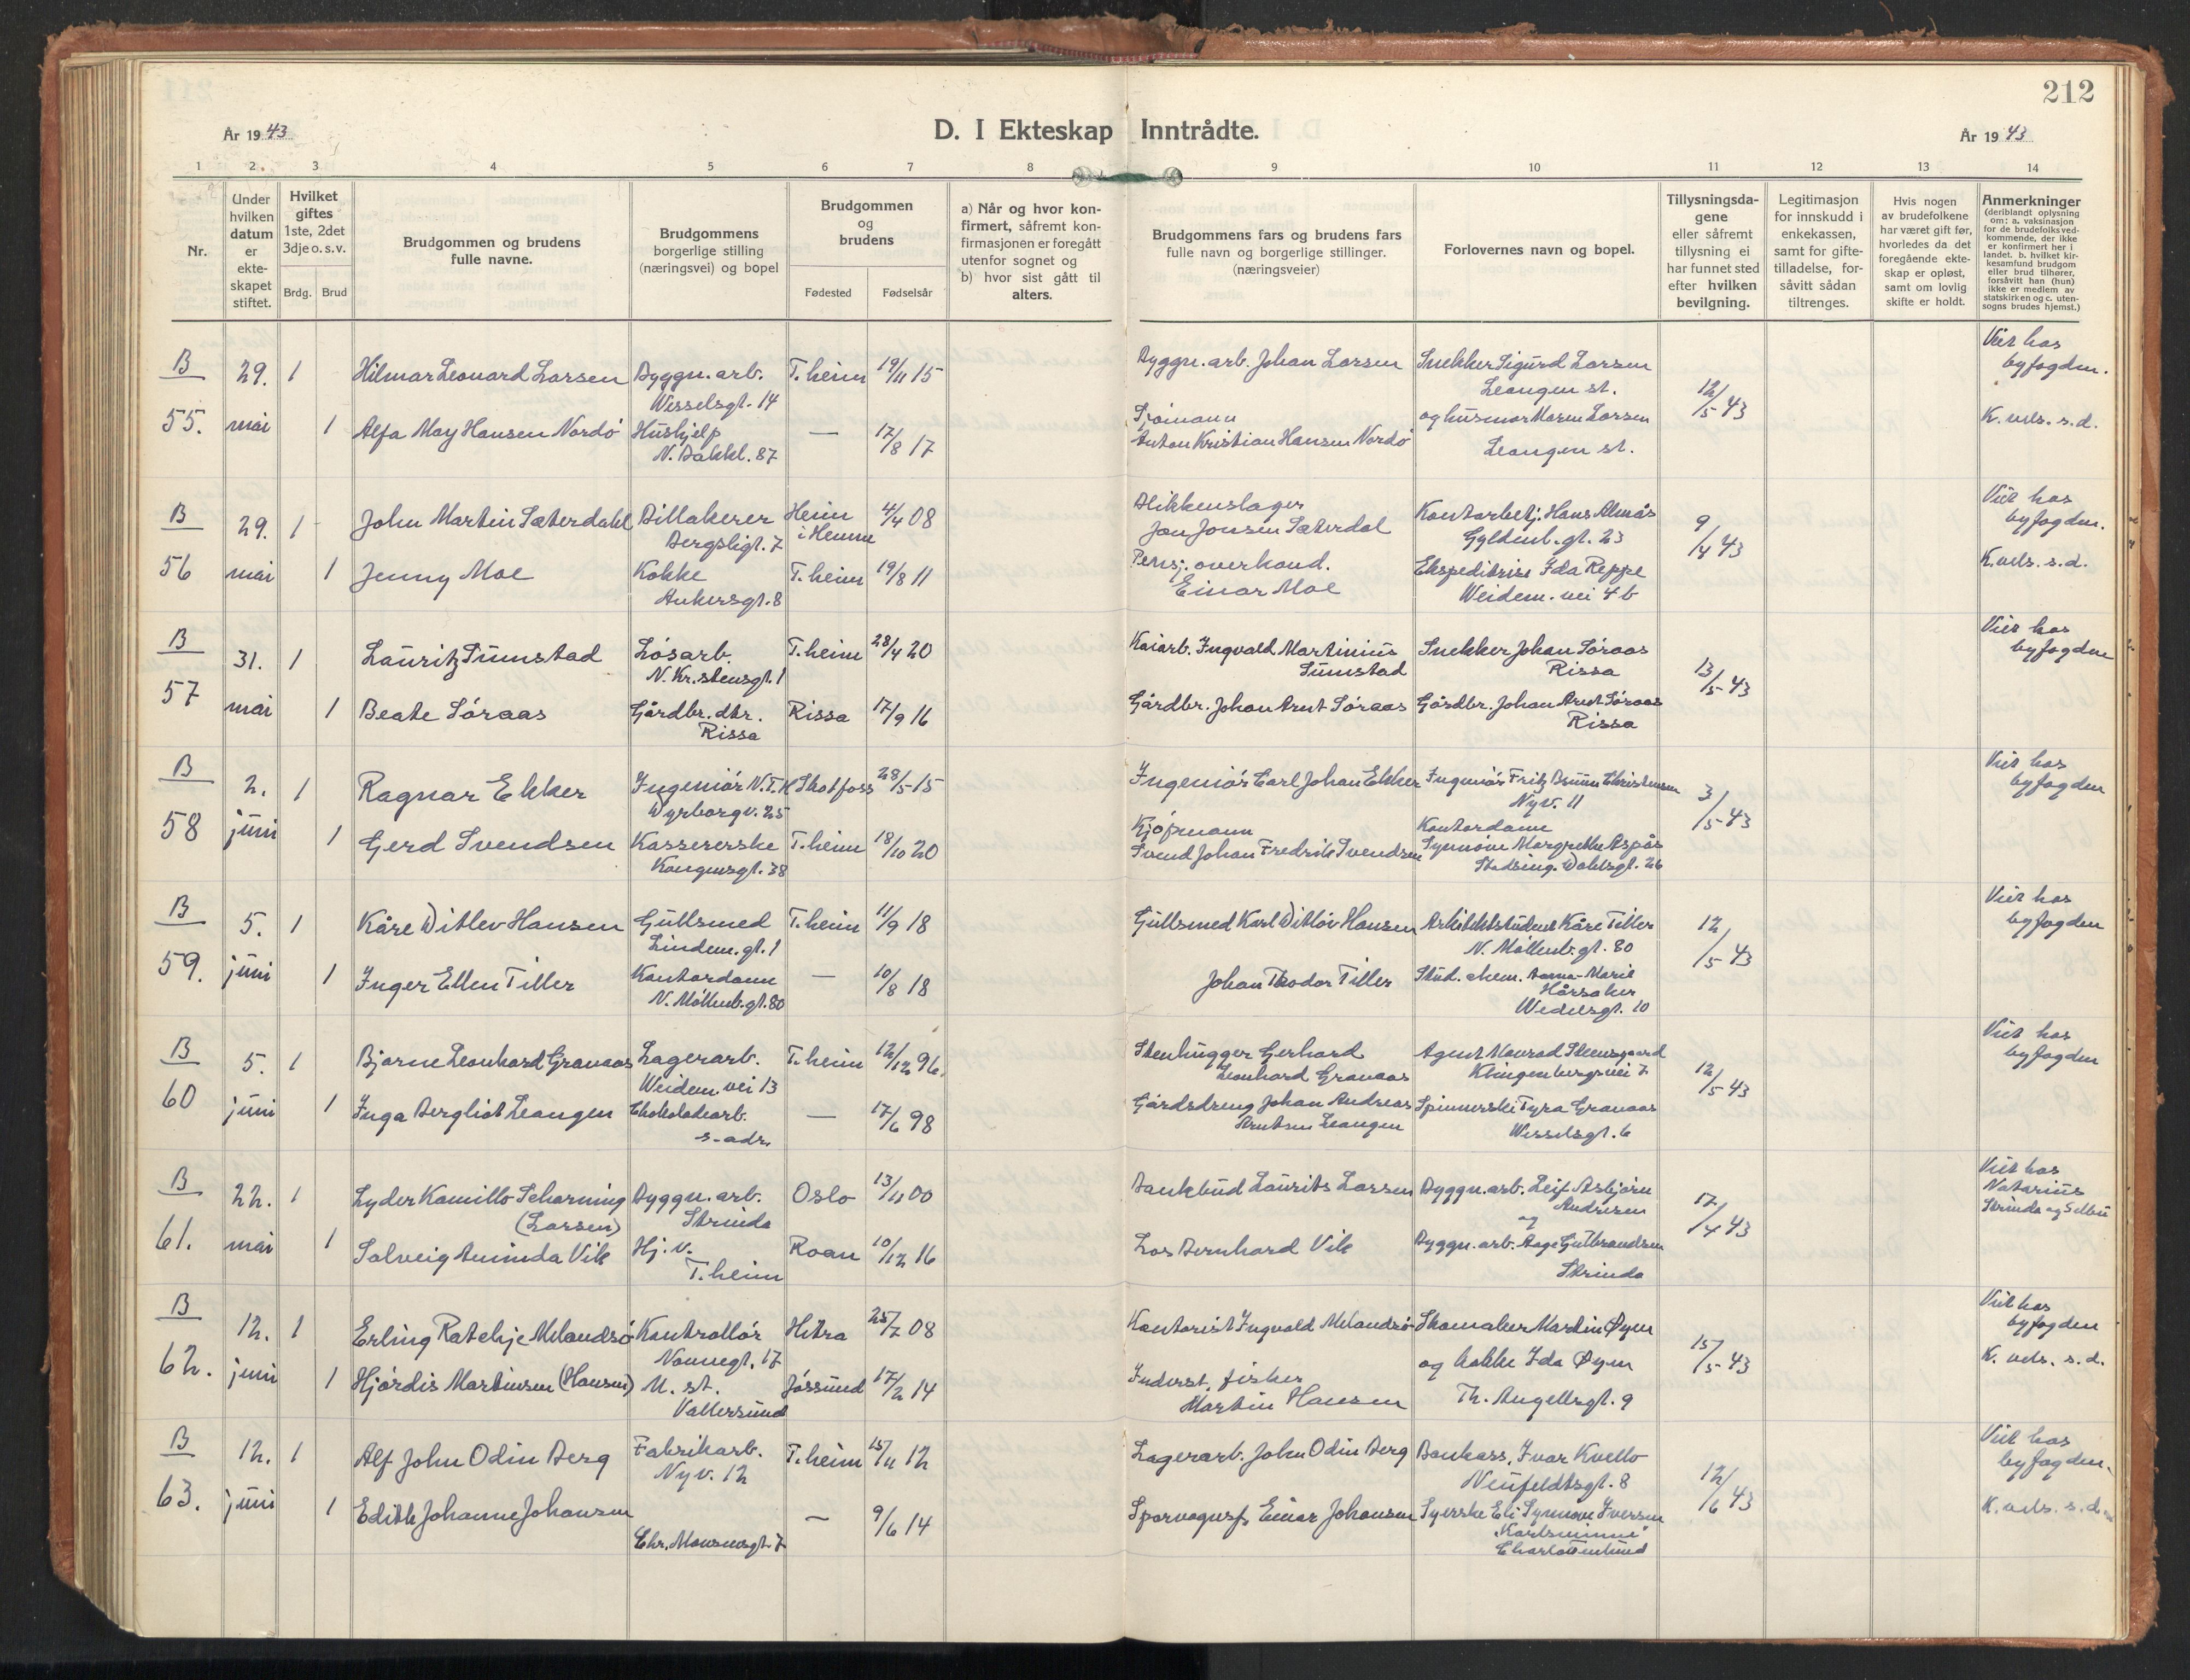 212
År 1943
D. I Ekteskap Inntrådte.
År 1943
1 2. 3 4 5 6 7 8 9 10 11 12 13 14
Nr.
Under hvilken datum er ekte-skapet stiftet.
Hvilket giftes 1ste, 2det 3dje o. s. v.
Brdg. Brud
Brudgommen og brudens fulle navne.
Brudgommens borgerlige stilling (næringsvei) og bopel
Brudgommen og brudens
Fødested Fødselsår
a) Når og hvor kon-firmert, såfremt kon-firmasjonen er foregått utenfor sognet og b) hvor sist gått til alters.
Brudgommens fars og brudens fars fulle navn og borgerlige stillinger. (næringsveier)
Forlovernes navn og bopel.
Tillysningsda-gene eller såfremt tillysning ei har funnet sted efter hvilken bevilgning.
Legitimasjon for innskudd i enkekassen, samt for gifte-tilladelse, for-såvitt sådan tiltrenges.
Hvis nogen av brudefolkene har været gift før, hvorledes da det foregående ekte-skap er opløst, samt om lovlig skifte er holdt.
Anmerkninger (deriblandt oplysning om: a. vaksinasjon for de brudefolks ved-kommende, der ikke er konfirmert her i landet. b. hvilket kir-kesamfund brudgom eller brud tilhører, forsåvitt han (hun) ikke er medlem av statskirken og c. uten-sogns brudes hjemst.)
B 29. 1 Hilmar Leonard Larsen Byggn. arb. T.heim 19/11 15 Byggn. arb. Johan Larsen Snekker Sigurd Larsen Viet hos
Wesselsgt. 14 Leangen st. 12/5-43 byfogden.
55. mai 1 Alfa May Hansen Nordö Hushjelp — 17/8 17 Sjömann og husmor Maren Larsen K. vels. s.d.
N. Bakkl. 87 Anton Kristian Hansen Nordö Leangen st.
B 29. 1 John Martin Sæterdahl Billakerer Heim 4/4 08 Blikkenslager Kontorbetj. Hans Almås Viet hos
Bergsligt. 7 i Hemne Jon Jonsen Sæterdal Gyldenl. gt. 23 9/4 43 byfogden.
56 mai 1 Jenny Moe Kokke T.heim 19/8 11 Pensj. overkond. Ekspeditrise Ida Reppe K. vels. s.d.
Ankersgt. 8 Einar Moe Weidem. vei 4b
B 31. 1 Lauritz Sumstad Lösarb. T.heim 28/4 20 Kaiarb. Ingvald Martinius Snekker Johan Söraas Viet hos
N. Kr.stensgt. 1 Sumstad Rissa 13/5-43 byfogden
57 mai 1 Beate Söraas Gårdbr. dtr. Rissa 17/9 16 Gårdbr. Johan Arnt Söraas Gårdbr. Johan Arnt Söraas
Rissa Rissa
B 2. 1 Ragnar Ekker Ingeniör N.T.H Skotfoss 28/5-15 Ingeniör Carl Johan Ekker Ingeniör Fritz Bruun Christensen Viet hos
Wyrborgv. 25 Nyv. 11 3/5-43 byfogden
58 juni 1 Gerd Svendsen Kassererske T.heim 18/10 20 Kjöpmann Kontordame
Kongensgt. 38 Svend Johan Fredrik Svendsen Synnöve Margrethe Aspås
Stadsing. Dahlsgt. 26
B 5. 1 Kåre Ditlev Hansen Gullsmed T.heim 11/9 18 Gullsmed Karl Ditlöv Hansen Arkitektstudent Kåre Tiller Viet hos
Lindem. gt. 1 N. Möllenb. gt. 80 12/5-43 byfogden
59. juni 1 Inger Ellen Tiller Kontordame — 10/8 18 Johan Teodor Tiller Stud. chem. Anna-Marie
N. Möllenb. gt. 80 Hårsaker
Wedelsgt. 10
B 5. 1 Bjarne Leonhard Granaas Lagerarb. T.heim 12/12 96. Stenhugger Gerhard Agent Konrad Steensgaard Viet hos
Weidem. vei 13 Leonhard Granaas Klingenbergsvei 7 12/5-43 byfogden
60 juni 1 Inga Bergliot Leangen Chokoladearb. — 17/6 98 Gårdsdreng Johan Andreas Spinnerske Tyra Granaas
s. adr. Arntsen Leangen Wesselsgt. 6
B 22. 1 Lyder Kamillo Scharning Byggn. arb. Oslo 13/11 00 Bankbud Laurits Larsen Byggn. arb. Leif Asbjörn Viet hos
(Larsen) Strinda Andresen 17/4 43 Notarius
og Strinda og Selbu
61. mai 1 Solveig Aminda Vik Hj. v. Roan 10/12 16 Los Bernhard Vik Byggn. arb. Aage Gulbrandsen
T.heim Strinda
B 12. 1 Erling Ratchje Melandsö Kontrollör Hitra 25/7 08 Kontorist Ingvald Melandsö Skomaker Martin Øyen Viet hos
Nonnegt. 17 15/5-43 byfogden
62. juni 1 Hjördis Martinsen (Hansen) U. st. Jössund 17/2 14 Inderst, fisker og kokke Ida Øyen K. vels. s.d.
Vallersund Martin Hansen Th. Angellsgt. 9
B 12. 1 Alf John Odin Berg Fabrikarb. T.heim 15/11 12 Lagerarb. John Odin Berg Bankass. Ivar Kvello Viet hos
Nyv. 12 Neufeldtsgt. 8 12/6 43 byfogden.
63. juni 1 Edith Johanne Johansen — 9/6 14 Sporvognsf. Einar Johansen Syerske Eli Synnöve Iversen K. vels. s.d.
Chr. Monsensgt. 7 "Karlsminne"
Charlottenlund